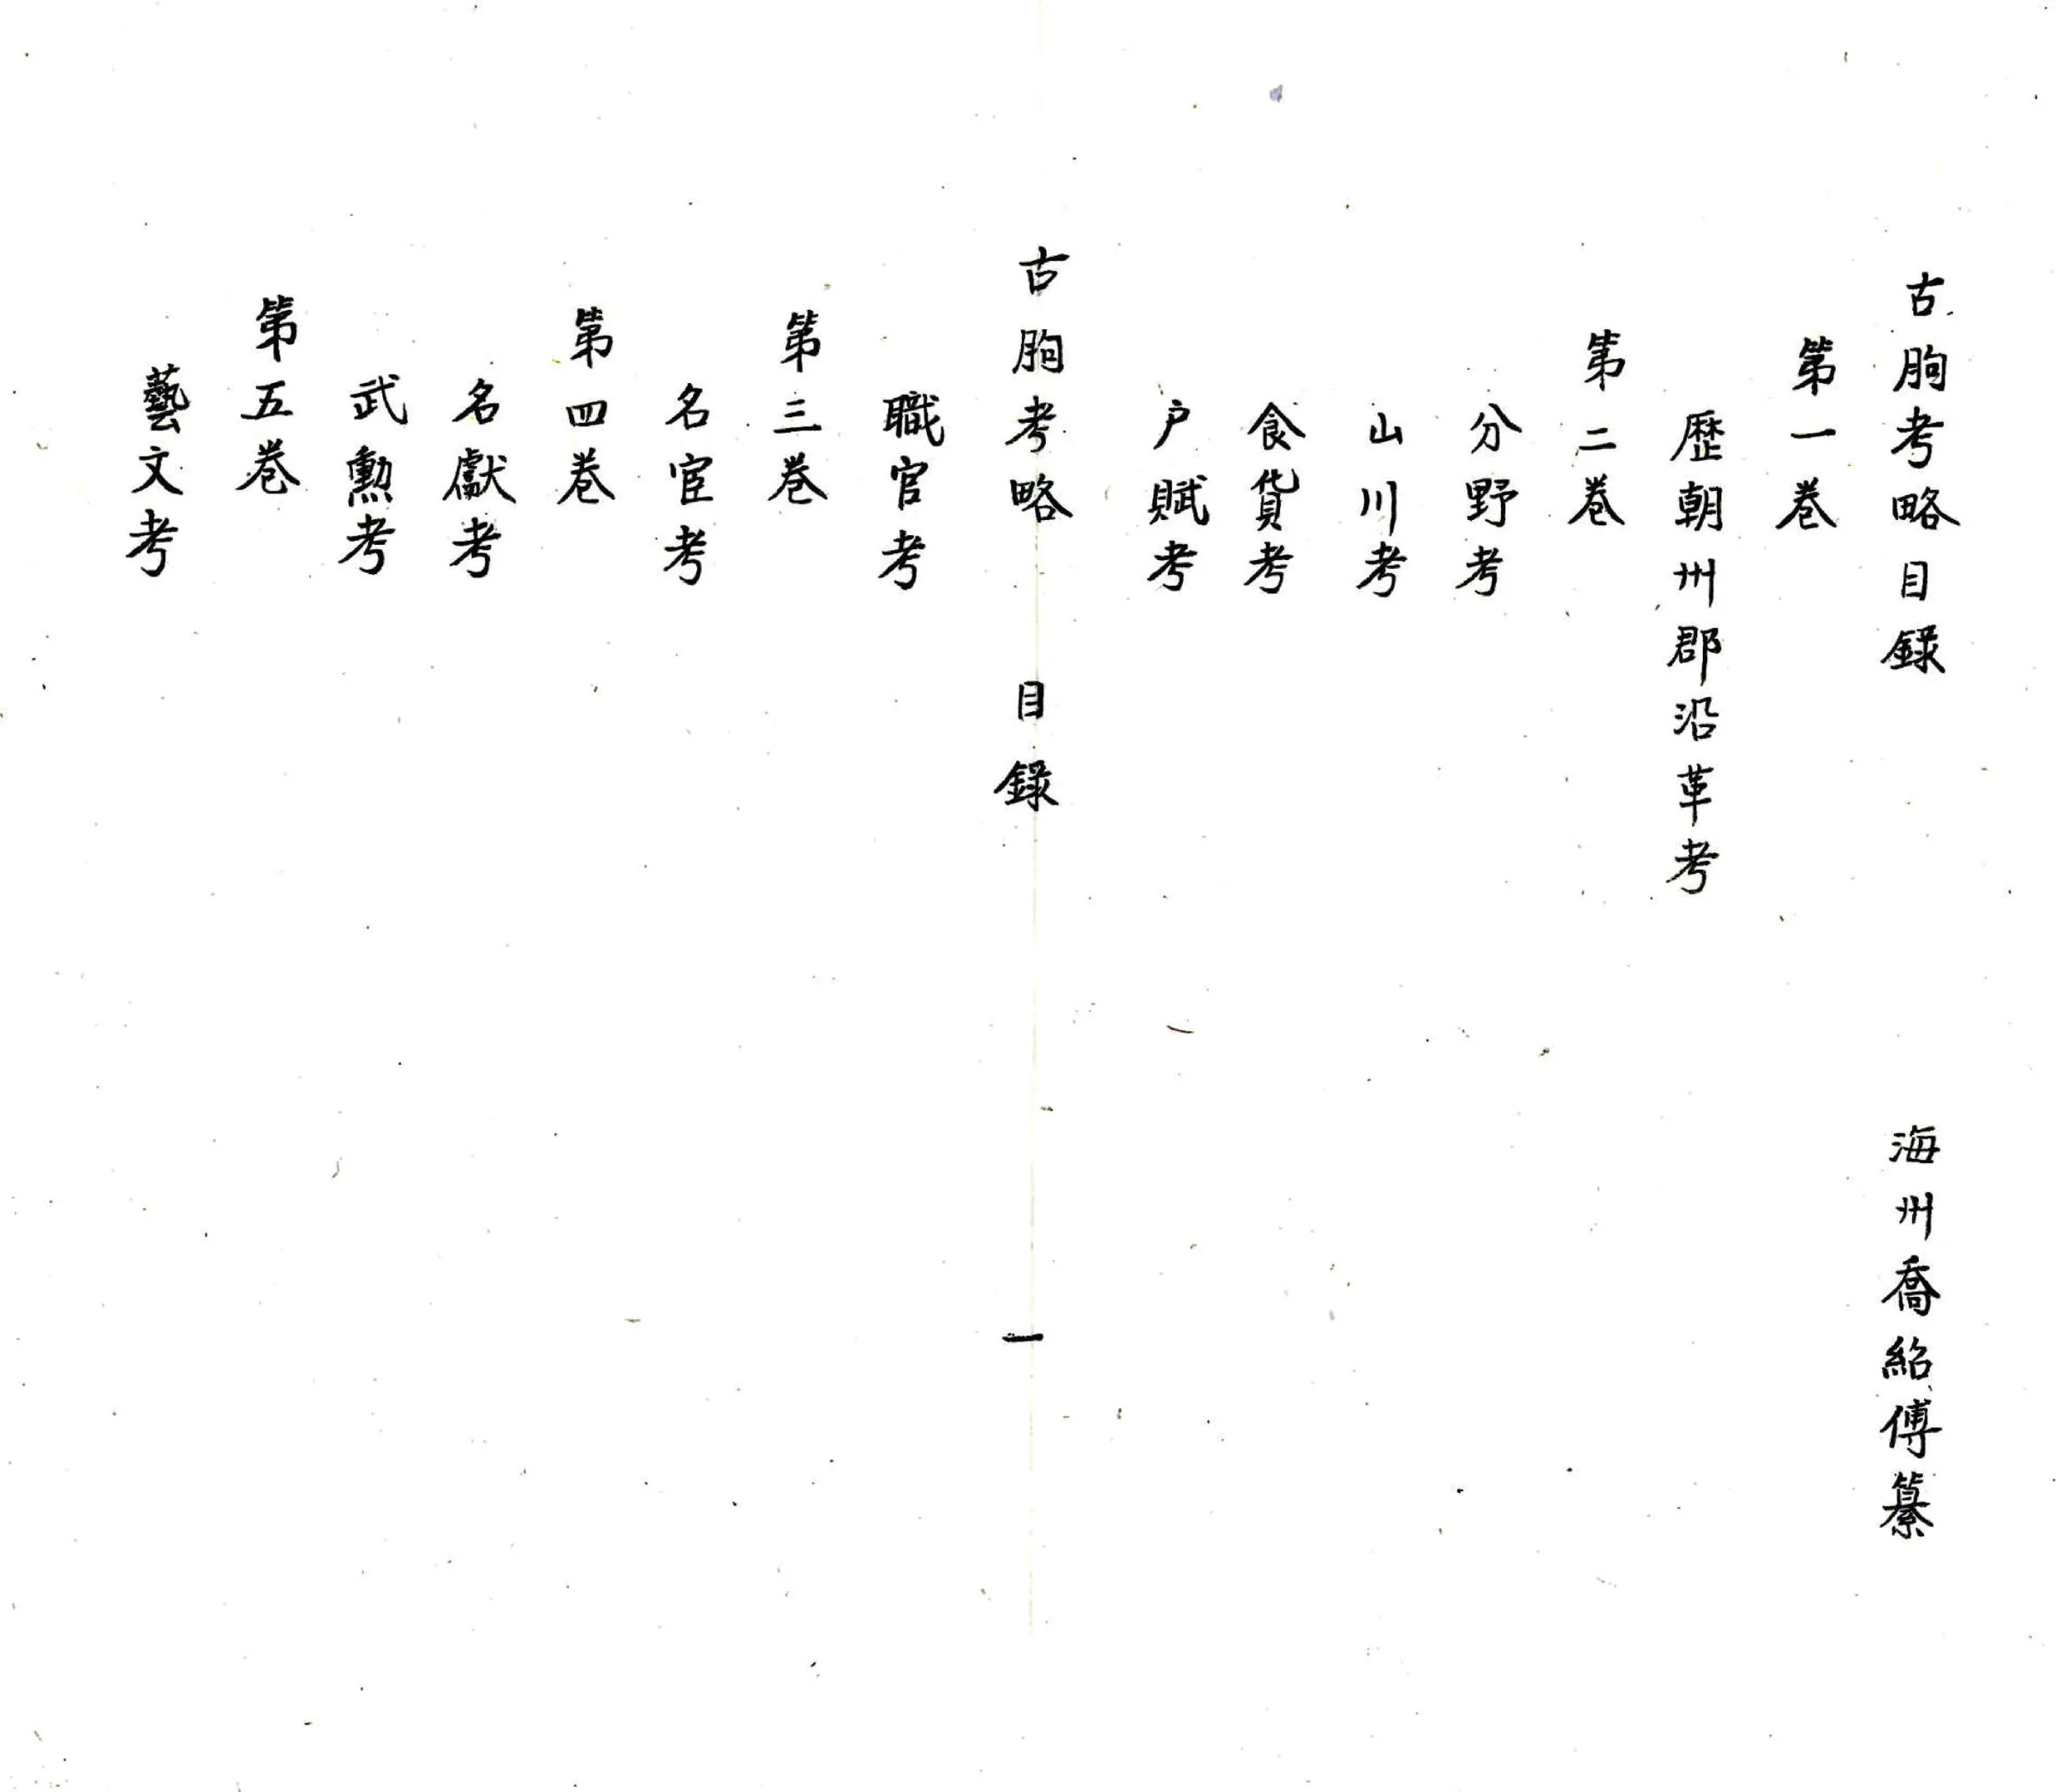 古朐考略目錄　海州喬紹傅纂
第一巻
歷朝州郡沿革考
第二巻
分野考
山川考
食貨考
户賦考
古朐考略　目錄　一
職官考
第三巻
名宦考
第四巻
名獻考
武勳考
第五巻
藝文考